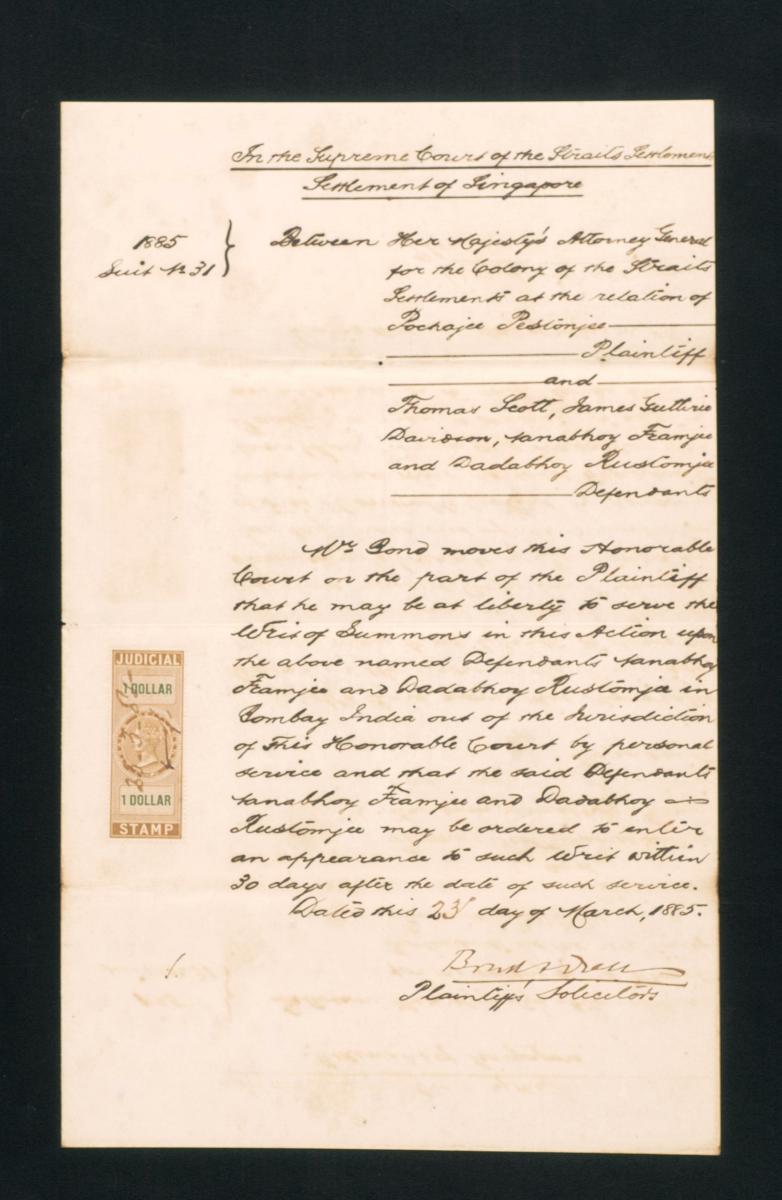 In the Supreme Court of the Straits Settlements
Settlement of Singapore
1885
Suit No 31
Between Her Majesty's Attorney General
for the Colony of the Straits
Settlements at the relation of
Pochajee Pestonjee
Plaintiff
and
Thomas Scott, James Guthrie
Davidson, Nanabhoy Framjee
and Dadabhoy Rustomjee
Defendants
Mr Bond moves this Honorable
Court on the part of the Plaintiff
that he may be at liberty to serve the
Writ of Summons in this Action upon
the above named Defendants Nanabhoy
Framjee and Dadabhoy Rustomjee in
Bombay India out of the Jurisdiction
of this Honorable Court by personal
service and that the said Defendants
Nanabhoy Framjee and Dadabhoy
Rustomjee may be ordered to enter
an appearance to such Writ within
30 days after the date of such service.
Dated this 23 day of March, 1885.
Plaintiff's Solicitors
JUDICIAL
1 DOLLAR
1 DOLLAR
STAMP